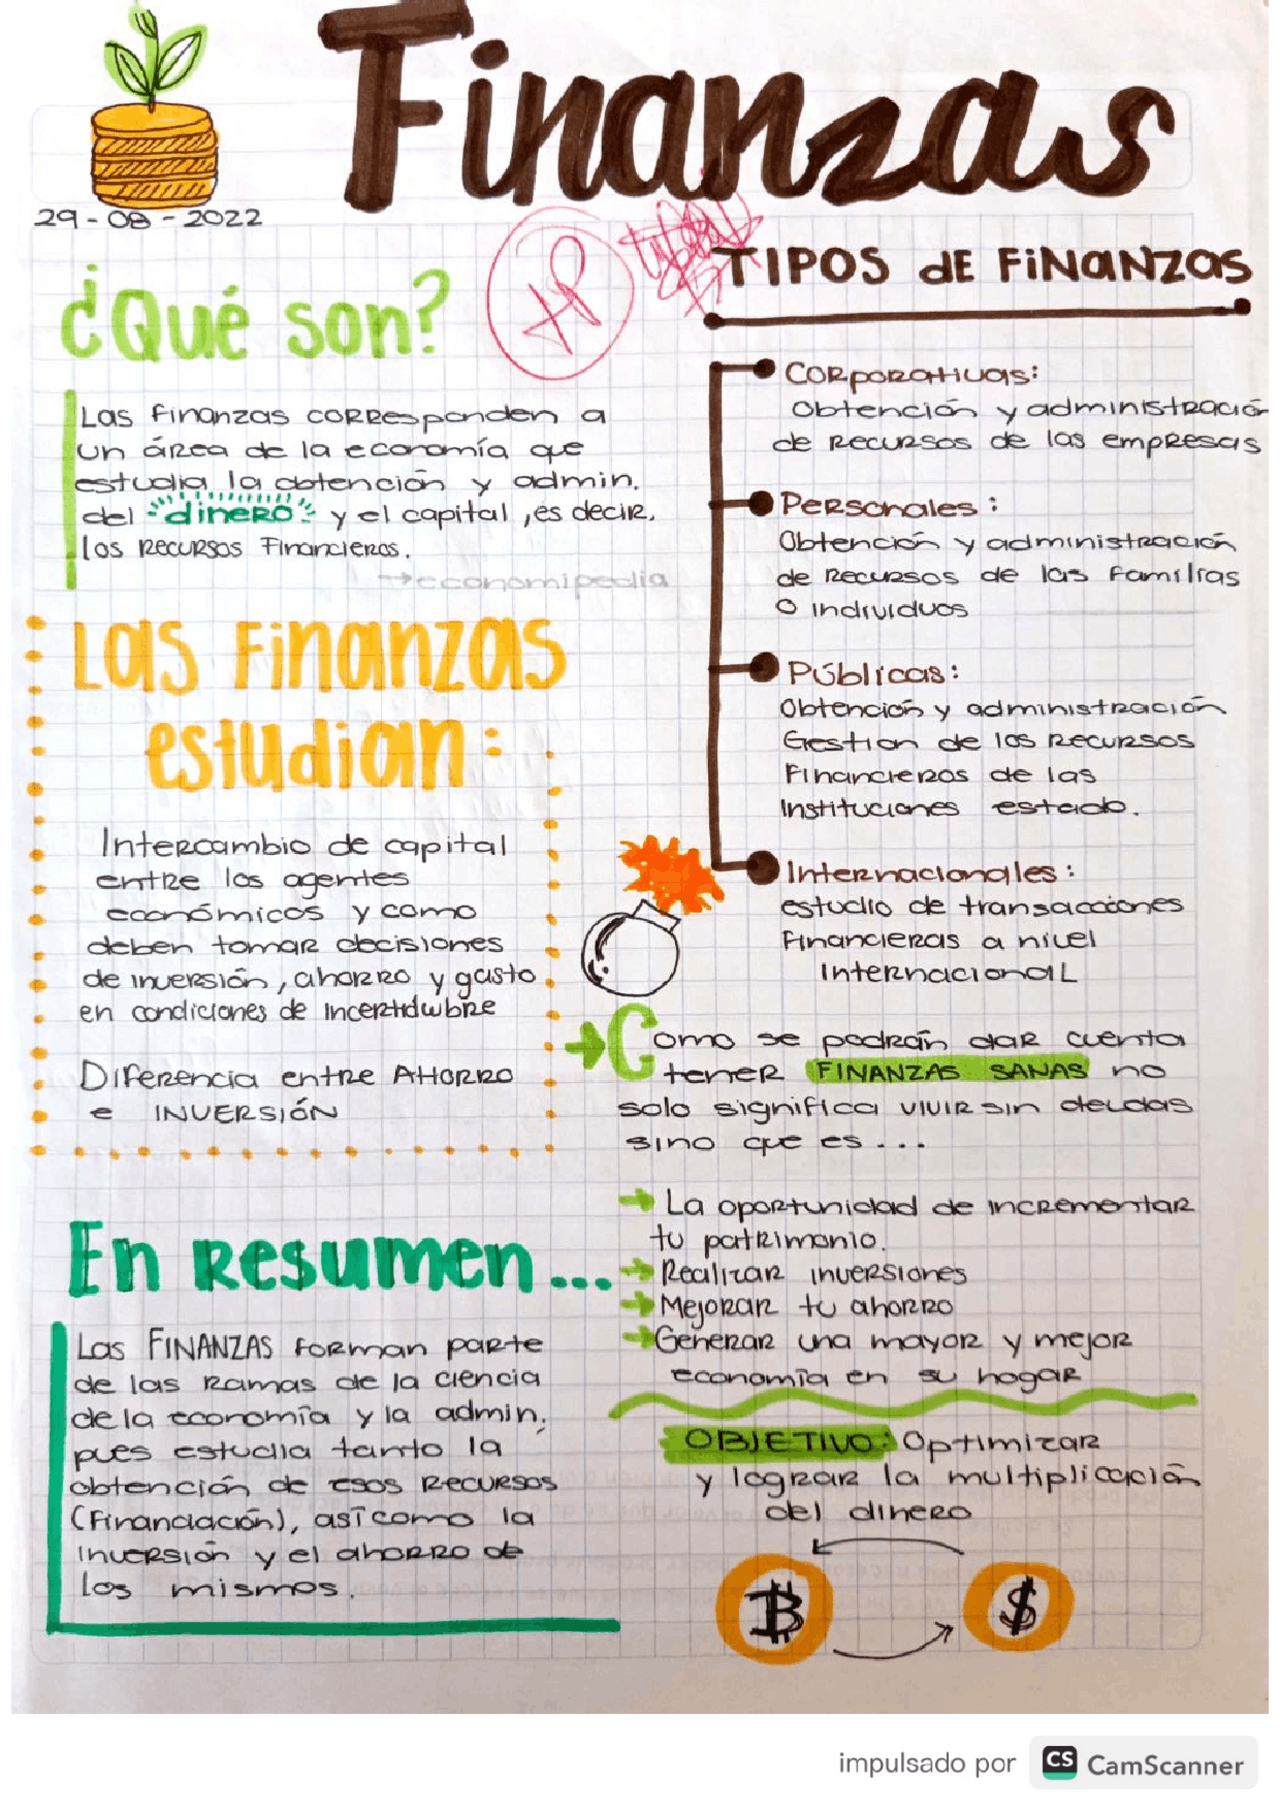 Finanzas
29-08-2022
¿Qué son?
Las finanzas corresponden a
un área de la economía que
estudia la obtención y admin.
del "dinero" y el capital, es decir,
los recursos financieros.
→economipedia
Las Finanzas
estudian:
Intercambio de capital
entre los agentes
económicos y como
deben tomar decisiones
de inversión, ahorro y gasto
en condiciones de Incertidubre
Diferencia entre AHORRO
e INVERSIÓN
En Resumen...
Las FINANZAS forman parte
de las ramas de la ciencia
de la economía y la admin;
pues estudia tanto la
obtención de esos recursos
(Financiación), así como la
Inversión y el ahorro de
los mismos.
TIPOS DE FINANZAS
Corporativas:
Obtención y administració
de recursos de las empresas
Personales:
Obtención y administración
de recursos de las familias
o individuos
Públicas:
Obtención y administración
Gestion de los recursos
Financieros de las
Instituciones estado.
Internacionales:
estudio de transacciones
Financieras a nivel
InternacionaL
→Como se podrán dar cuenta
tener FINANZAS SANAS no
solo significa vivir sin deudas
sino que es...
→ La oportunidad de incrementar
tu patrimonio.
→ Realizar inversiones
→ Mejorar tu ahorro
→ Generar una mayor y mejor
economía en su hogar
OBJETIVO: Optimizar
y lograr la multiplicación
del dinero
₿ $
impulsado por CS CamScanner